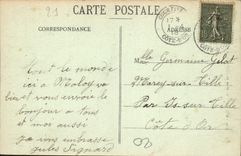 21
CARTE POSTALE
CORRESPONDANCE
Adresse
Tout ce monde
ici à Moloy va
bien et vous envoie le
bonjour à tous
et moi aussi
je vous embrasse
Jules Signard
Mlle Germaine Gelot
Marey sur Tille
Par Is sur Tille
Côte d'Or